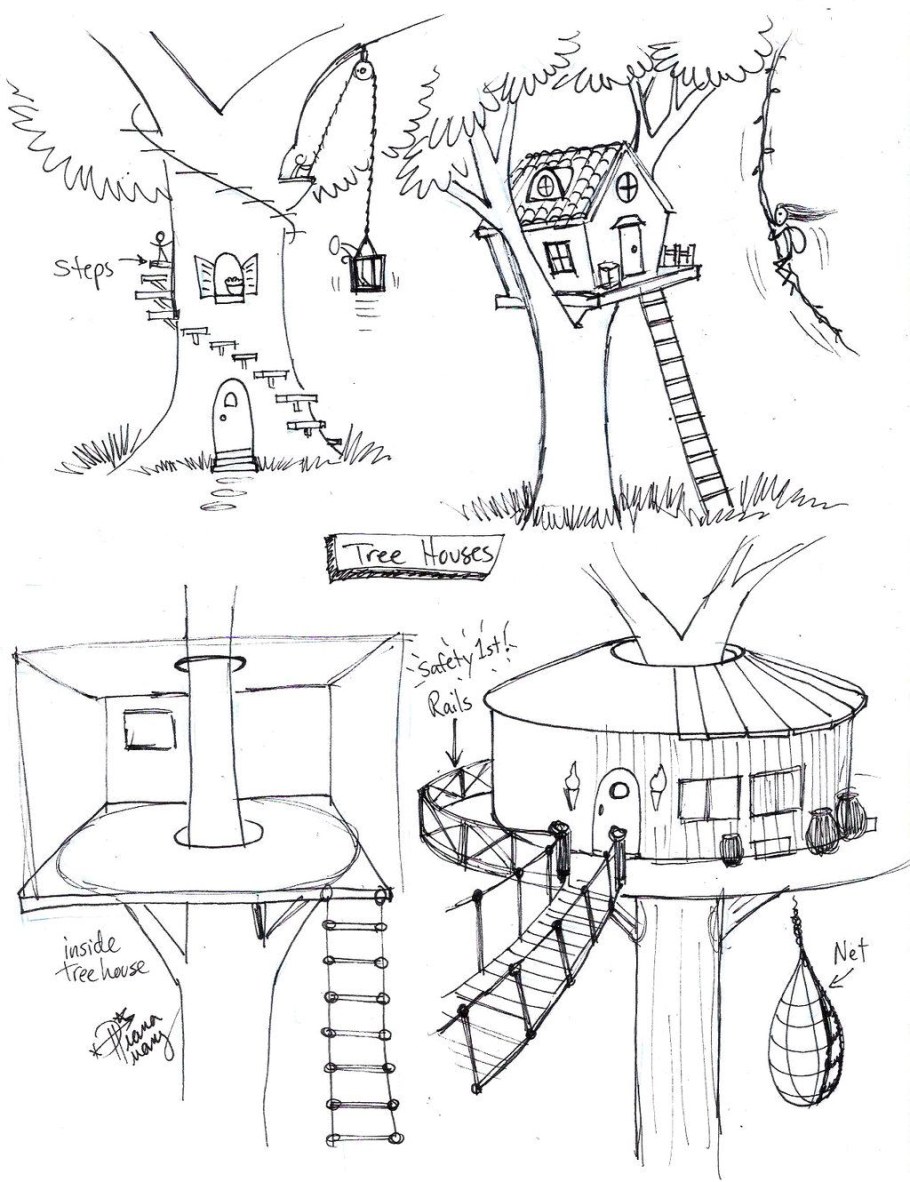 Steps
Tree Houses
Safety 1st!
Rails
inside
treehouse
Diana
Net